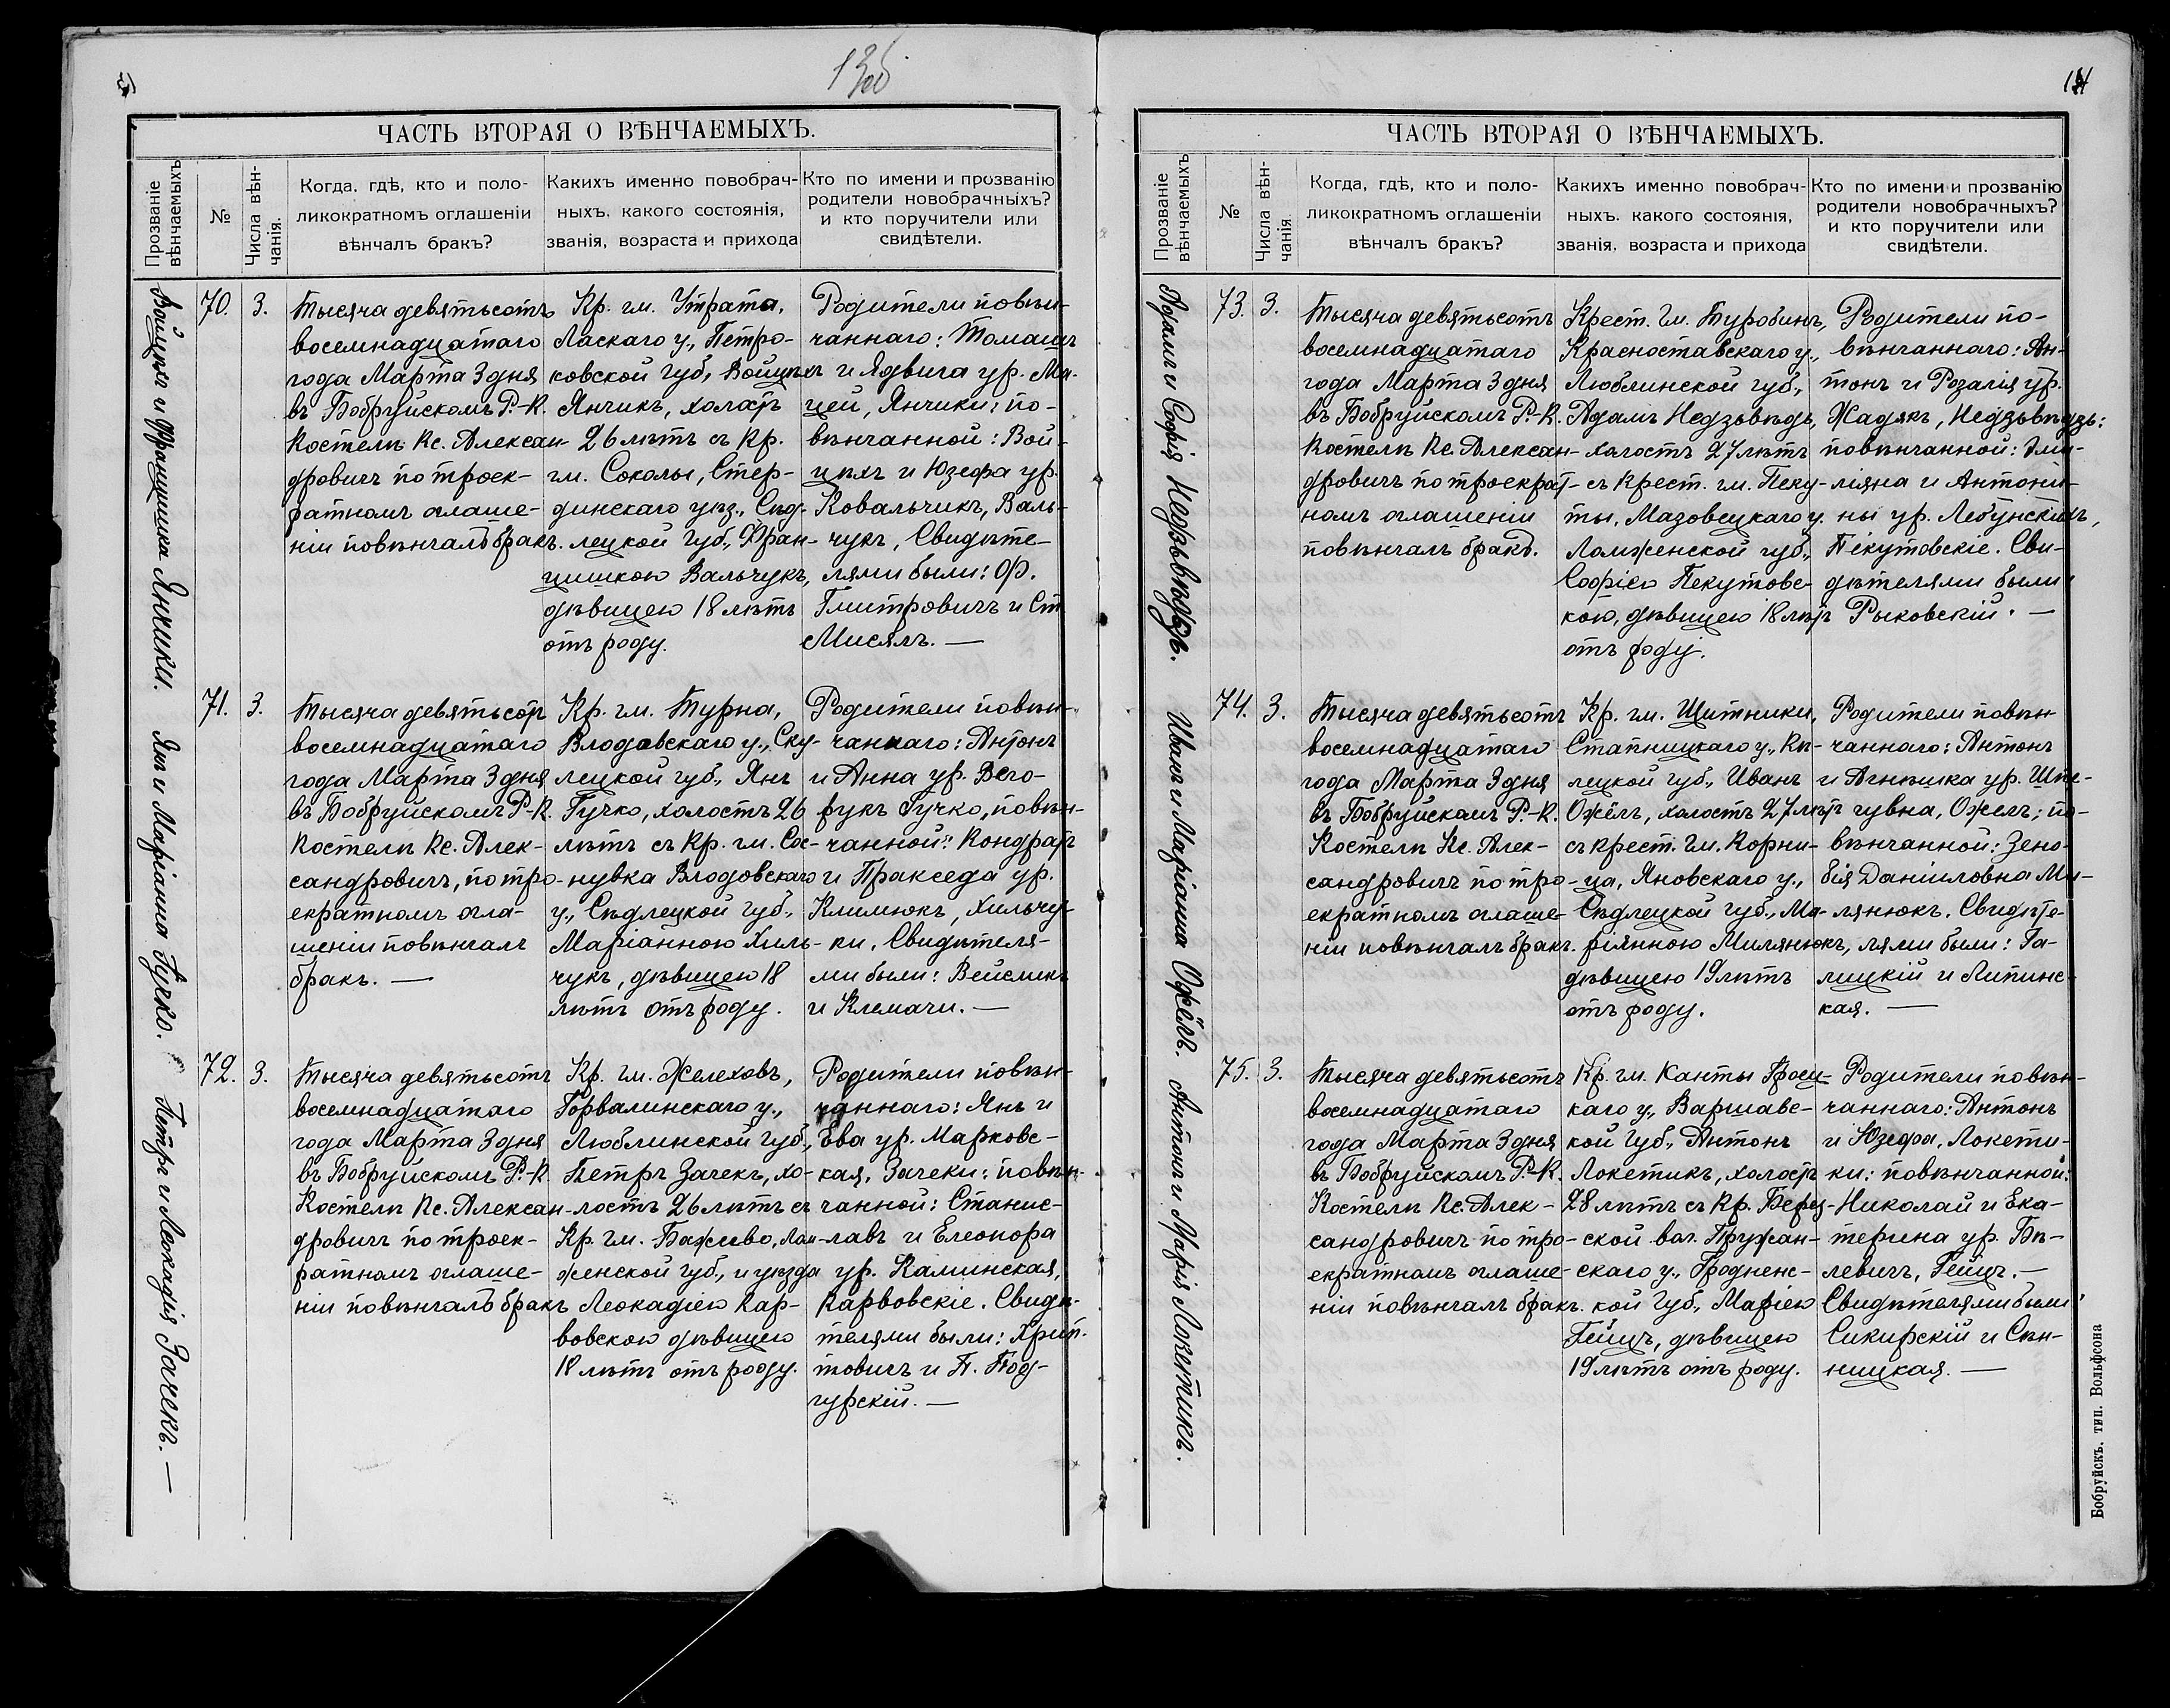 13об
ЧАСТЬ ВТОРАЯ О ВѢНЧАЕМЫХЪ.
Прозваніе
вѣнчаемыхъ
№
Числа вѣн-
чанія.
Когда, гдѣ, кто и поло-
ликократномъ оглашеніи
вѣнчалъ бракъ?
Какихъ именно повобрач-
ныхъ, какого состоянія,
званія, возраста и прихода
Кто по имени и прозванію
родители новобрачныхъ?
и кто поручители или
свидѣтели.
Войцѣхъ и Францишка Янчики.
70.
3.
Тысяча девятьсотъ
восемнадцатаго
года Марта 3 дня
въ Бобруйскомъ Р.-К.
Костелѣ Кс. Алексан-
дровичъ по троек-
ратномъ оглаше-
ніи повѣнчалъ бракъ.
Кр. гм. Утрата,
Ласкаго у., Петро-
ковской губ., Войцѣхъ
Янчикъ, холостъ
26 лѣтъ съ Кр.
гм. Соколы, Стер-
динскаго уѣз., Сѣд-
лецкой губ., Фран-
цишкою Вальчукъ,
дѣвицею 18 лѣтъ
отъ роду.
Родители повѣн-
чаннаго: Томашъ
и Ядвига ур. Ма-
цей, Янчики; по-
вѣнчанной: Вой-
цѣхъ и Юзефа ур.
Ковальчикъ, Валь-
чукъ, Свидѣте-
лями были: Ф.
Гмитровичъ и Ст
Мисялъ. —
Янъ и Маріанна Гучко.
71.
3.
Тысяча девятьсотъ
восемнадцатаго
года Марта 3 дня
въ Бобруйскомъ Р-К.
Костелѣ Кс. Алек-
сандровичъ, по тро-
екратномъ огла-
шеніи повѣнчалъ
бракъ. —
Кр. гм. Турна,
Влодавскаго у., Сѣд-
лецкой губ., Янъ
Гучко, холостъ 26
лѣтъ съ Кр. гм. Сос-
нувка Влодовскаго
у., Сѣдлецкой губ.,
Маріанною Хиль-
чукъ, дѣвицею 18
лѣтъ отъ роду.
Родители повѣн-
чаннаго: Антонъ
и Анна ур. Веч-
рукъ Гучко, повѣн-
чанной: Кондратъ
и Пракседа ур.
Климюкъ, Хильчу-
ки, Свидѣтеля-
ми были: Вейсликъ
и Клемачи. —
Петръ и Леокадія Зачекъ. —
72.
3.
Тысяча девятьсотъ
восемнадцатаго
года Марта 3 дня
въ Бобруйскомъ Р.-К
Костелѣ Кс. Алексан-
дровичъ по троек-
ратномъ оглаше-
ніи повѣнчалъ бракъ
Кр. гм. Желеховъ,
Горвалинскаго у.,
Люблинской губ.,
Петръ Зачекъ, хо-
лостъ 26 лѣтъ съ
Кр. гм. Бажево, Лом-
женской губ., и уѣзда
Леокадіею Кар-
вовскою дѣвицею
18 лѣтъ отъ роду.
Родители повѣн-
чаннаго: Янъ и
Ева ур. Марковс-
кая, Зачеки: повѣн-
чанной: Станис-
лавъ и Елеонора
ур. Каминская,
Карвовскіе. Свидѣ-
телями были: Хрип-
товичъ и П. Под-
гурскій. —
ЧАСТЬ ВТОРАЯ О ВѢНЧАЕМЫХЪ.
Прозваніе
вѣнчаемыхъ
№
Числа вѣн-
чанія
Когда, гдѣ, кто и поло-
ликократномъ оглашеніи
вѣнчалъ бракъ?
Какихъ именно повобрач-
ныхъ. какого состоянія,
званія, возраста и прихода
Кто по имени и прозванію
родители новобрачныхъ?
и кто поручители или
свидѣтели.
Адамъ и Софія Недзьвѣдзь.
73.
3.
Тысяча девятьсотъ
восемнадцатаго
года Марта 3 дня
въ Бобруйскомъ Р.-К.
Костелѣ Кс. Алексан-
дровичъ по троекрат-
номъ оглашеніи
повѣнчалъ бракъ.
Крест. Гм. Туробинъ,
Красноставскаго у.,
Люблинской губ.,
Адамъ Недзьвѣдь,
холостъ 27 лѣтъ
съ Крест. гм. Пеку-
ты, Мазовецкаго у.
Ломженской губ.,
Софіею Пекутовс-
кою, дѣвицею 18 лѣтъ
отъ роду.
Родители по-
вѣнчаннаго: Ан-
тонъ и Розалія ур.
Жадякъ, Недзьвѣдзь:
повѣнчанной: Эми-
ліяна и Антони-
ны ур. Лебунскихъ,
Пекутовскіе. Сви-
дѣтелями были
Рыковскій. —
Иванъ и Маріанна Ожёлъ.
74.
3.
Тысяча девятьсотъ
восемнадцатаго
года Марта 3 дня
въ Бобруйскомъ Р.-К.
Костелѣ Кс. Алек-
сандровичъ по тро-
екратномъ оглаше-
ніи повѣнчалъ бракъ.
Кр. гм. Щитники,
Стапницкаго у., Кѣ-
лецкой губ., Иванъ
Ожёлъ, холостъ 27 лѣтъ
съ крест. Гм. Корни-
ца, Яновскаго у.,
Сѣдлецкой губ., Ма-
ріянною Милянюкъ,
дѣвицею 19 лѣтъ
отъ роду.
Родители повѣн
чаннаго: Антонъ
и Агнѣшка ур. Шпе-
гувна, Ожелъ; по-
вѣнчанной: Зено-
бія Даниловна Ми-
лянюкъ. Свидѣте-
лями были: Га-
лицкій и Липинс-
кая. —
Антонъ и Марія Локетикъ.
75.
3.
Тысяча девятьсотъ
восемнадцатаго
года Марта 3 дня
въ Бобруйскомъ Р.-К.
Костелѣ Кс. Алек-
сандровичъ по тро-
екратномъ оглаше-
ніи повѣнчалъ бракъ.
Кр. гм. Канты Гроец-
каго у., Варшавс-
кой Губ., Антонъ
Локетикъ, холостъ
28 лѣтъ съ Кр. Берез-
ской вол. Пружан-
скаго у., Гродненс-
кой Губ., Маріею
Гейцъ, дѣвицею
19 лѣтъ отъ роду.
Родители повѣн-
чаннаго: Антонъ
и Юзефа, Локети-
ки: повѣнчанной:
Николай и Ека-
терина ур. Бѣ-
левичъ, Гейцъ. —
Свидѣтелями были
Сикирскій и Сѣн-
ницкая. —
Бобруйскъ. тип. Вольфсона